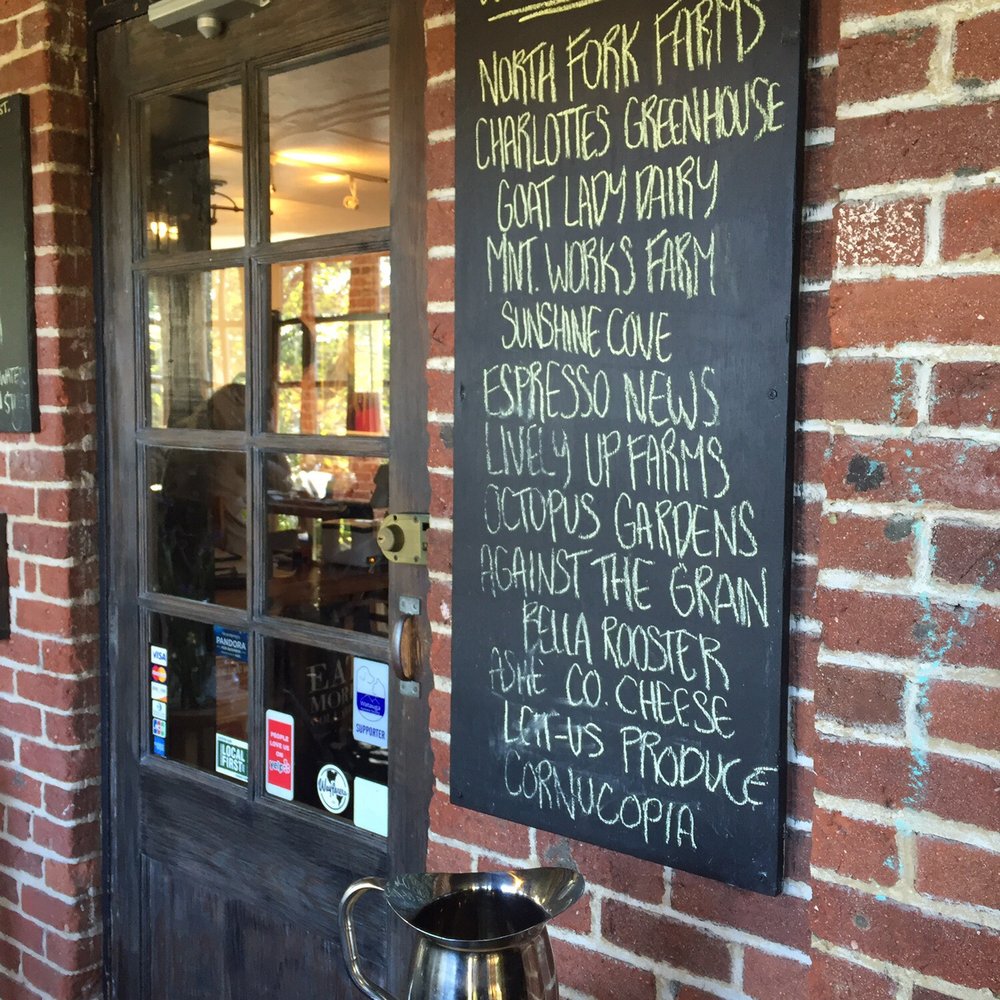 ST.
NORTH FORK FARMS
CHARLOTTES GREENHOUSE
GOAT LADY DAIRY
MNT. WORKS FARM
SUNSHINE COVE
ESPRESSO NEWS
LIVELY UP FARMS
OCTOPUS GARDENS
AGAINST THE GRAIN
BELLA ROOSTER
ASHE CO. CHEESE
LETT-US PRODUCE
CORNUCOPIA
PANDORA
VISA
EA
MOR
Watauga
SUPPORTER
LOCAL
FIRST
PEOPLE
LOVE US
ON
yelp
Wayfarers